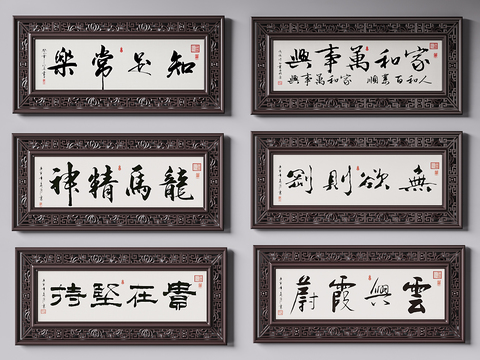 知足常樂
家和萬事興
家和萬事興
龍馬精神
無欲則剛
貴在堅持
雲興霞蔚